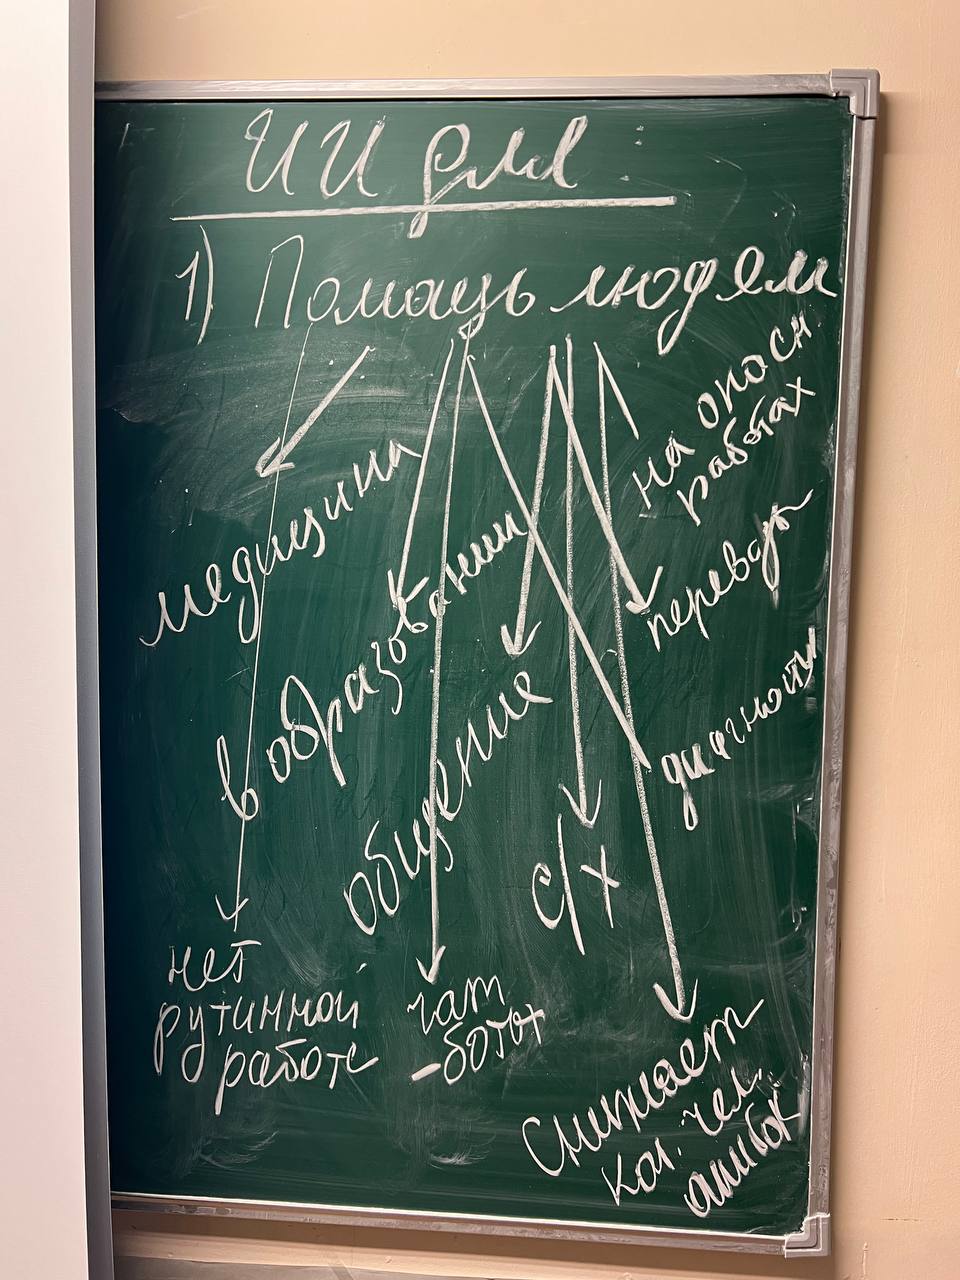 ИИ для:
1) Помощь людям
медицина
в образовании
общение
с/х
на опасн
работах
переводы
диагносты
нет
рутинной
работе
чат
-боты
Снижает
кол. чел.
ошибок